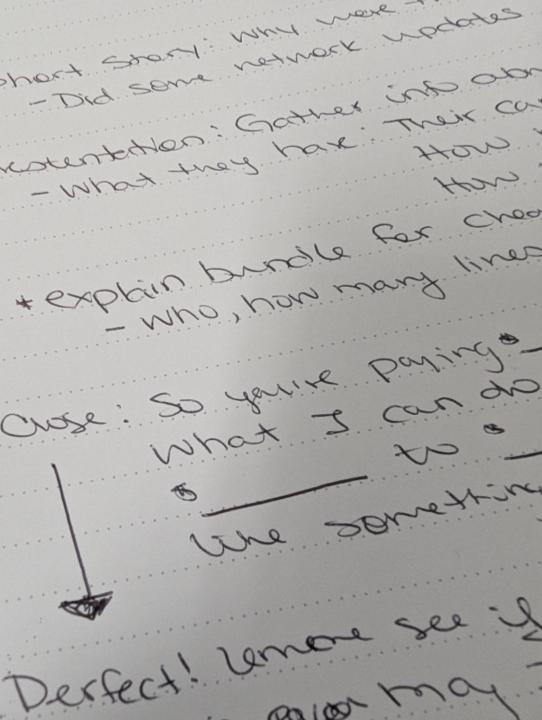 Short Story: Why were
- Did some network updates
Presentation: Gather info abo
- What they have: Their ca
How
How
* explain bundle for chea
- Who, how many lines
Close: So you're paying $
What I can do
$ ____ to $
like something
Perfect! Lemme see if
may